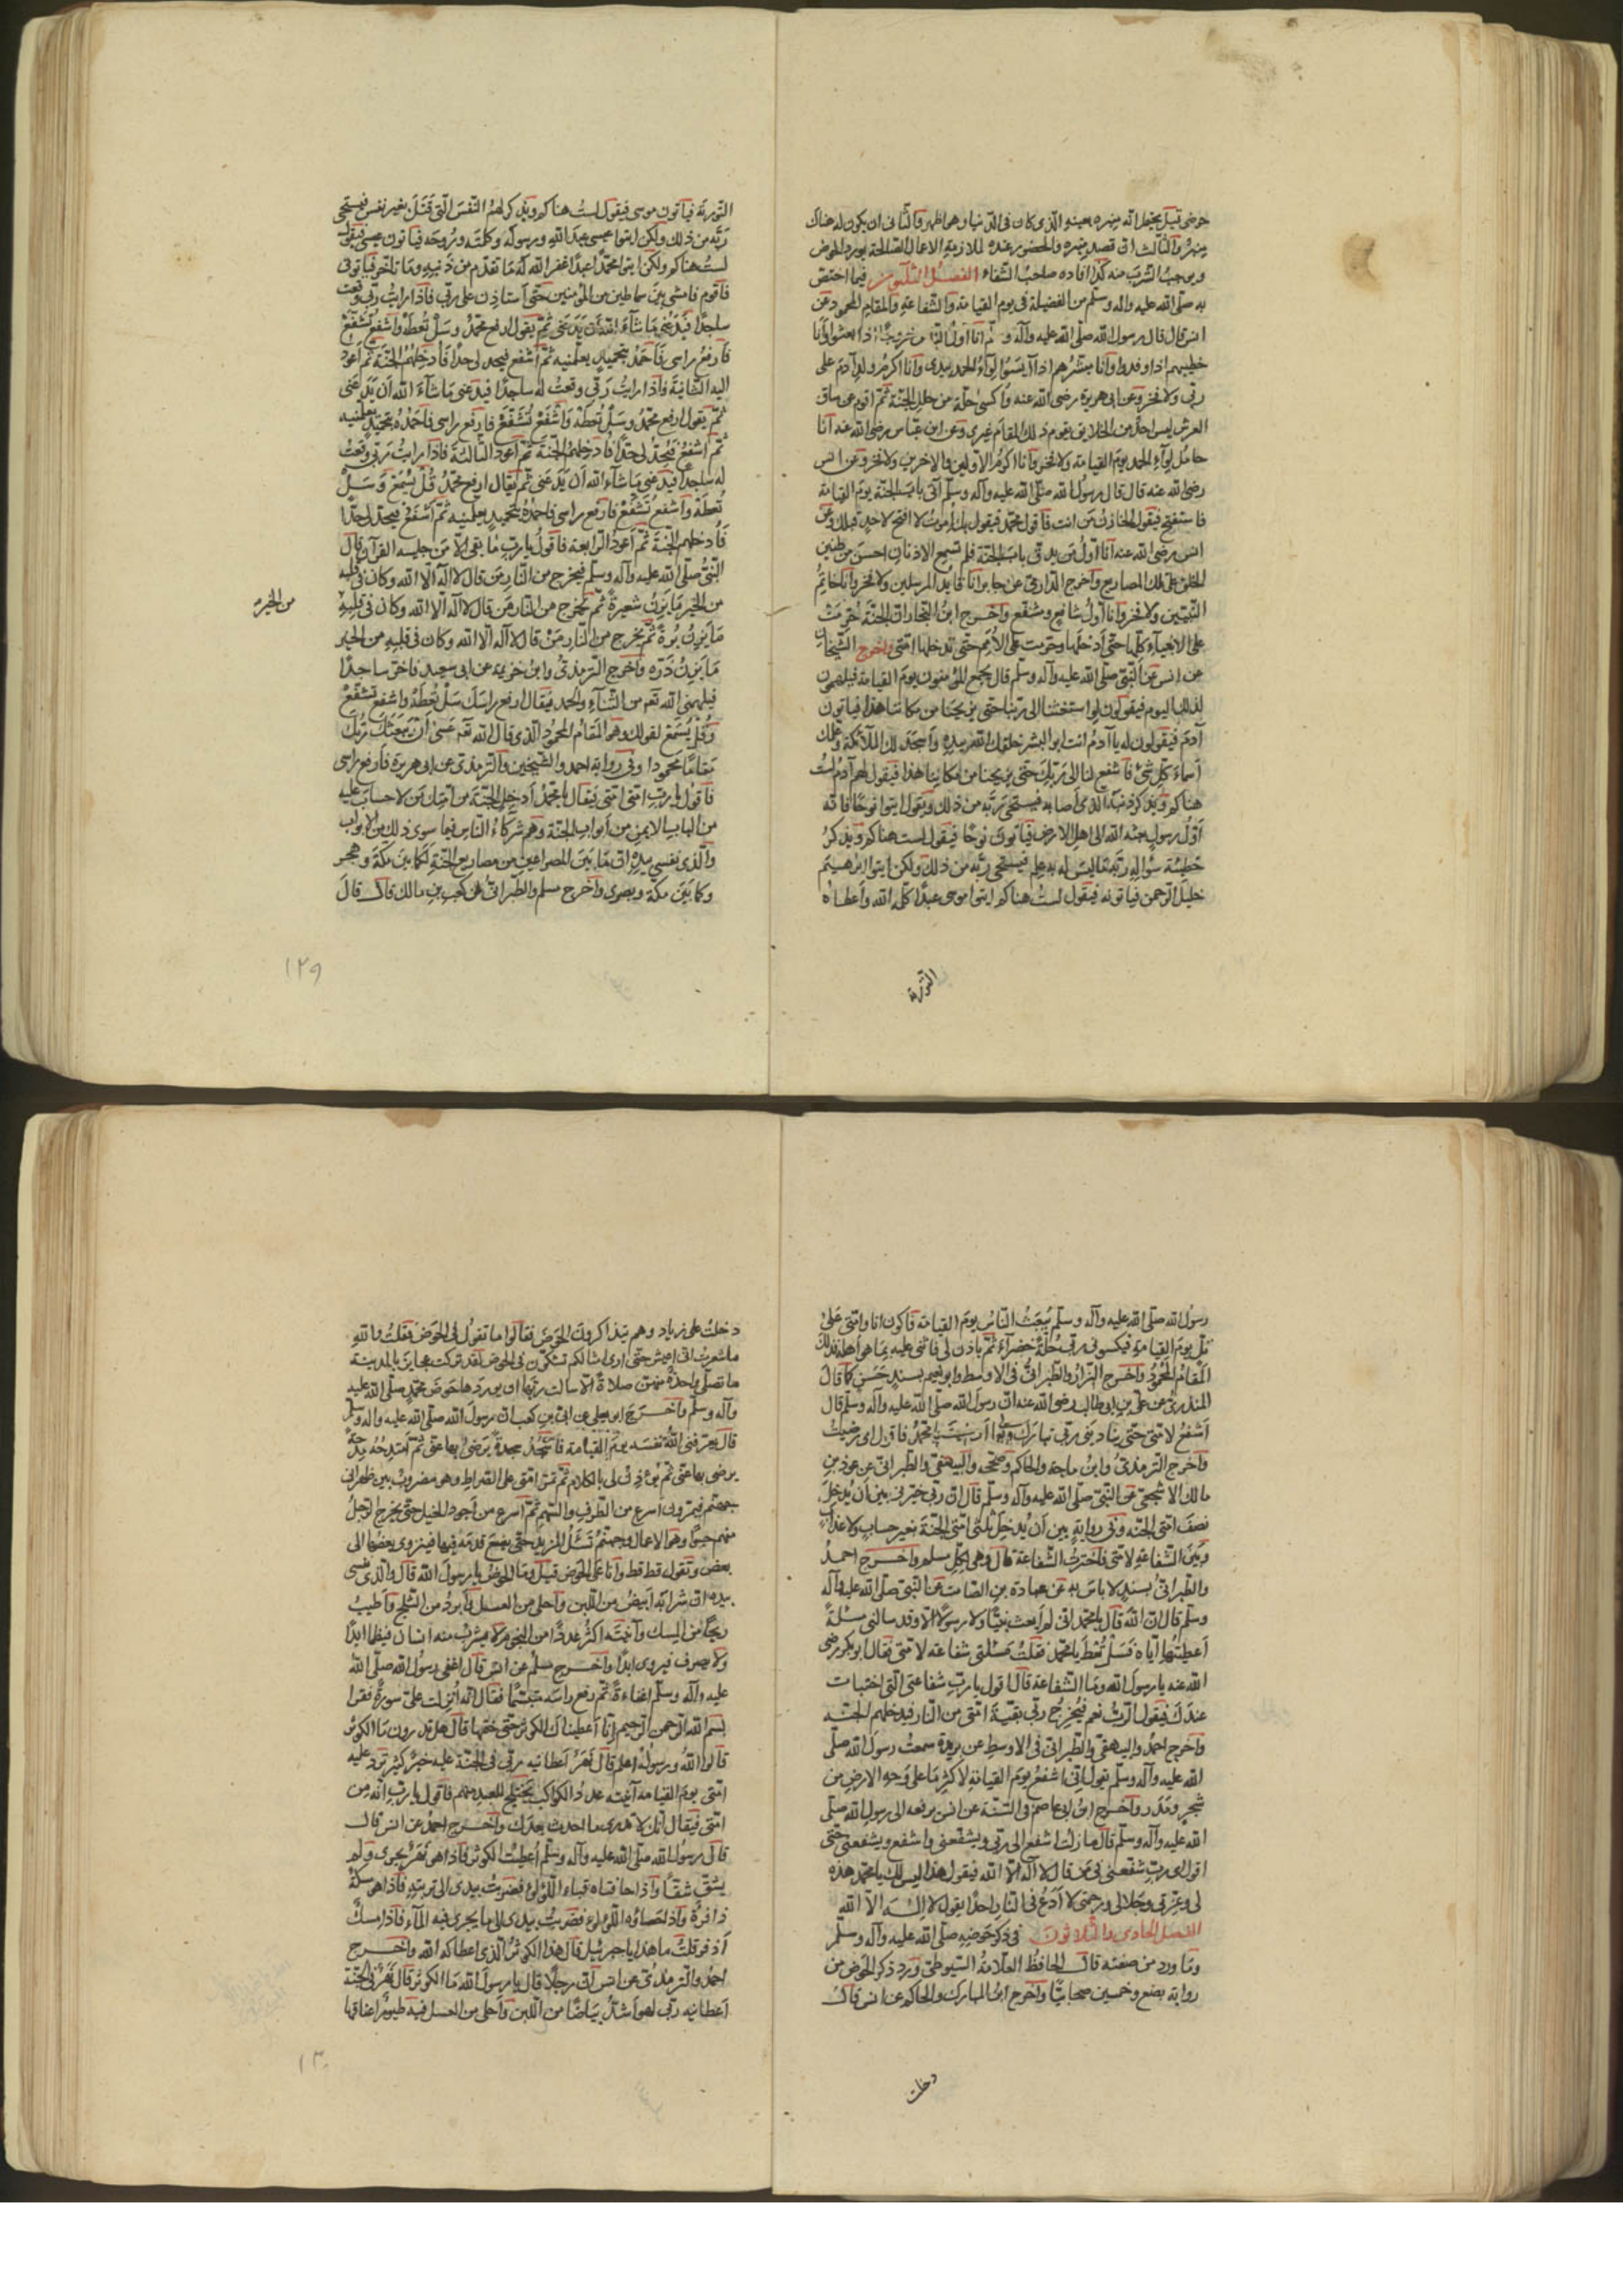 حوضي قيل يحتمل انه منبره بعينه الذي كان في الدنيا وهو اظهر والثاني ان يكون له هناك
منبر والثالث ان قصد منبره والحضور عنده لملازمة الاعمال الصالحة يورد الحوض
ويوجب الشرب منه كذا افاده صاحب الشفاء الفصل الثلثون فيما اختص
به صلى الله عليه واله وسلم من الفضيلة في يوم القيامة والشفاعة والمقام المحمود عن
انس قال قال رسول الله صلى الله عليه وآله وسلم انا اول الناس خروجا اذا بعثوا وانا
خطيبهم اذا وفدوا وانا مبشرهم اذا ايسوا لواء الحمد بيدي وانا اكرم ولد آدم على
ربي ولا فخر وعن ابي هريرة رضي الله عنه واكسى حلة من حلل الجنة ثم اقوم عن ساق
العرش ليس احد من الخلايق يقوم ذلك المقام غيري وعن ابن عباس رضي الله عنه انا
حامل لواء الحمد يوم القيامة ولا فخر وانا اكرم الاولين والاخرين ولا فخر وعن انس
رضي الله عنه قال قال رسول الله صلى الله عليه وآله وسلم آتي باب الجنة يوم القيامة
فاستفتح فيقول الخازن من انت فاقول محمد فيقول بك امرت لا افتح لاحد قبلك وعن
انس رضي الله عنه انا اول من يدق باب الجنة فلم تسمع الاذنان احسن من طنين
الحلق على تلك المصاريع واخرج الدارمي عن جابر انا قايد المرسلين ولا فخر وانا خاتم
النبيين ولا فخر وانا اول شافع ومشفع واخرج ابن النجار ان الجنة حرمت
على الانبياء كلها حتى ادخلها وحرمت على الامم حتى تدخلها امتي واخرج الشيخان
عن انس عن النبي صلى الله عليه وآله وسلم قال يجمع المؤمنون يوم القيامة فيلهمون
لذلك اليوم فيقولون لو استشفعنا الى ربنا حتى يريحنا من مكاننا هذا فياتون
آدم فيقولون له يا آدم انت ابو البشر خلقك الله بيده واسجد لك الملائكة وعلمك
اسماء كل شئ فاشفع لنا الى ربك حتى يريحنا من مكاننا هذا فيقول لهم آدم لست
هناكم ويذكر ذنبه الذي اصابه فيستحي ربه من ذلك ويقول ايتوا نوحا فانه
اول رسول بعثه الله الى اهل الارض فياتون نوحا فيقول لست هناكم ويذكر
خطيئة سؤاله ربه ما ليس له به علم فيستحي ربه من ذلك ولكن ايتوا ابرهيم
خليل الرحمن فياتونه فيقول لست هناكم ايتوا موسى عبدا كلمه الله واعطاه
التورية
التورية فياتون موسى فيقول لست هناكم ويذكر لهم النفس التي قتل بغير نفس فيستحي
ربه من ذلك ولكن ايتوا عيسى عبد الله ورسوله وكلمته وروحه فياتون عيسى فيقول
لست هناكم ولكن ايتوا محمدا عبدا غفر الله له ما تقدم من ذنبه وما تاخر فياتوني
فاقوم فامشي بين سماطين من المؤمنين حتى استاذن على ربي فاذا رايت ربي وقعت
ساجدا فيدعني ما شاء الله ان يدعني ثم يقول ارفع محمد وسل تعطه واشفع تشفع
فارفع راسي فاحمد بتحميد يعلمنيه ثم اشفع فيحد لي حدا فادخلهم الجنة ثم اعود
اليه الثانية واذا رايت ربي وقعت له ساجدا فيدعني ما شاء الله ان يدعني
ثم يقول ارفع محمد وسل تعطه واشفع تشفع فارفع راسي فاحمده بتحميد يعلمنيه
ثم اشفع فيحد لي حدا فادخلهم الجنة ثم اعود الثالثة فاذا رايت ربي وقعت
له ساجدا فيدعني ما شاء الله ان يدعني ثم يقال ارفع محمد قل تسمع وسل
تعطه واشفع تشفع فارفع راسي فاحمده بتحميد يعلمنيه ثم اشفع فيحد لي حدا
فادخلهم الجنة ثم اعود الرابعة فاقول يا رب ما بقي الا من حبسه القرآن قال
النبي صلى الله عليه وآله وسلم فيخرج من النار من قال لا اله الا الله وكان في قلبه
من الخير ما يزن شعيرة ثم يخرج من النار من قال لا اله الا الله وكان في قلبه
من الخير
ما يزن برة ثم يخرج من النار من قال لا اله الا الله وكان في قلبه من الخير
ما يزن ذرة واخرج الترمذي وابن خزيمة عن ابي سعيد فاخر ساجدا
فيلهمني الله تعه من الثناء والحمد فيقال ارفع راسك سل تعطه واشفع تشفع
وقل يسمع لقولك وهو المقام المحمود الذي قال الله تعه عسى ان يبعثك ربك
مقاما محمودا وفي رواية احمد والشيخين والترمذي عن ابي هريرة فارفع راسي
فاقول يا رب امتي امتي فيقال يا محمد ادخل الجنة من امتك من لا حساب عليه
من الباب الايمن من ابواب الجنة وهم شركاء الناس فيما سوى ذلك من الابواب
والذي نفسي بيده ان ما بين المصراعين من مصاريع الجنة لكما بين مكة وهجر
وكما بين مكة وبصرى واخرج مسلم والطبراني عن كعب بن مالك قال قال
١٢٩
رسول الله صلى الله عليه وآله وسلم يبعث الناس يوم القيامة فاكون انا وامتي على
تل يوم القيامة فيكسوني ربي حلة خضراء ثم ياذن لي فاثني عليه بما هو اهله فذلك
المقام المحمود واخرج البزار والطبراني في الاوسط وابو نعيم بسند حسن كما قال
المنذري عن علي بن ابي طالب رضي الله عنه ان رسول الله صلى الله عليه وآله وسلم قال
اشفع لامتي حتى يناديني ربي تبارك وتعالى ارضيت يا محمد فاقول اي رضيت
واخرج الترمذي وابن ماجة والحاكم وصححه والبيهقي والطبراني عن عوف بن
مالك الاشجعي عن النبي صلى الله عليه وآله وسلم قال ان ربي خيرني بين ان يدخل
نصف امتي الجنة وفي رواية بين ان يدخل ثلثي امتي الجنة بغير حساب ولا عذاب
وبين الشفاعة لامتي فاخترت الشفاعة قال وهي لكل مسلم واخرج احمد
والطبراني بسند لا باس به عن عبادة بن الصامت عن النبي صلى الله عليه وآله
وسلم قال ان الله قال يا محمد اني لم ابعث نبيا ولا رسولا الا وقد سالني مسئلة
اعطيتها اياه فسل تعط يا محمد فقلت مسئلتي شفاعة لامتي فقال ابو بكر رضي
الله عنه يا رسول الله وما الشفاعة قال اقول يا رب شفاعتي التي اختبات
عندك فيقول الرب نعم فيخرج ربي بقية امتي من النار فيدخلهم الجنة
واخرج احمد والبيهقي والطبراني في الاوسط عن بريدة سمعت رسول الله صلى
الله عليه وآله وسلم يقول اني اشفع يوم القيامة لاكثر ما على وجه الارض من
شجر ومدر واخرج ابن ابي عاصم في السنة عن انس يرفعه الى رسول الله صلى
الله عليه وآله وسلم قال ما زلت اشفع الى ربي ويشفعني واشفع ويشفعني حتى
اقول اي رب شفعني في من قال لا اله الا الله فيقول هذا ليس لك يا محمد هذه
لي وعزتي وجلالي ورحمتي لا ادع في النار احدا يقول لا اله الا الله
الفصل الحادي والثلاثون في ذكر حوضه صلى الله عليه وآله وسلم
وما ورد من صفته قال الحافظ العلامة السيوطي ورد ذكر الحوض من
رواية بضع وخمسين صحابيا واخرج ابن المبارك والحاكم عن انس قال
دخلت
دخلت على زياد وهم يتذاكرون الحوض فقالوا ما تقول في الحوض فقلت والله
ما شعرت اني اعيش حتى ارى امثالكم تشكون في الحوض لقد تركت عجايز بالمدينة
ما تصلي واحدة منهن صلاة الا سالت ربها ان يوردها حوض محمد صلى الله عليه
وآله وسلم واخرج ابو يعلى عن ابي بن كعب ان رسول الله صلى الله عليه واله وسلم
قال يعرفني الله نفسه يوم القيامة فاسجد سجدة يرضى بها عني ثم امتدحه مدحة
يرضى بها عني ثم يؤذن لي بالكلام ثم تمر امتي على الصراط وهو مضروب بين ظهراني
جهنم فيمرون اسرع من الطرف والسهم ثم اسرع من اجود الخيل حتى يخرج الرجل
منهم حبوا وهو الاعمال وجهنم تسئل المزيد حتى يضع قدمه فيها فينزوي بعضها الى
بعض وتقول قط قط وانا على الحوض قيل وما الحوض يا رسول الله قال والذي نفسي
بيده ان شرابه ابيض من اللبن واحلى من العسل وابرد من الثلج واطيب
ريحا من المسك وآنيته اكثر عددا من النجوم لا يشرب منه انسان فيظما ابدا
ولا يصرف فيروى ابدا واخرج مسلم عن انس قال اغفى رسول الله صلى الله
عليه وآله وسلم اغفاءة ثم رفع راسه متبسما فقال انه انزلت علي سورة فقرا
بسم الله الرحمن الرحيم انا اعطيناك الكوثر حتى ختمها قال هل تدرون ما الكوثر
قالوا الله ورسوله اعلم قال نهر اعطانيه ربي في الجنة عليه خير كثير ترد عليه
امتي يوم القيامة آنيته عدد الكواكب يختلج العبد منهم فاقول يا رب انه من
امتي فيقال انك لا تدري ما احدث بعدك واخرج احمد عن انس قال
قال رسول الله صلى الله عليه وآله وسلم اعطيت الكوثر فاذا هو نهر يجري ولم
يشق شقا واذا حافتاه قباب اللؤلؤ فضربت بيدي الى تربته فاذا هو مسكة
ذافرة واذا حصاؤه اللؤلؤ فضربت بيدي الى ما يجري فيه الماء فاذا مسك
اذفر قلت ما هذا يا جبرئيل قال هذا الكوثر الذي اعطاكه الله واخرج
احمد والترمذي عن انس ان رجلا قال يا رسول الله ما الكوثر قال نهر في الجنة
اعطانيه ربي لهو اشد بياضا من اللبن واحلى من العسل فيه طيور اعناقها
١٣٠